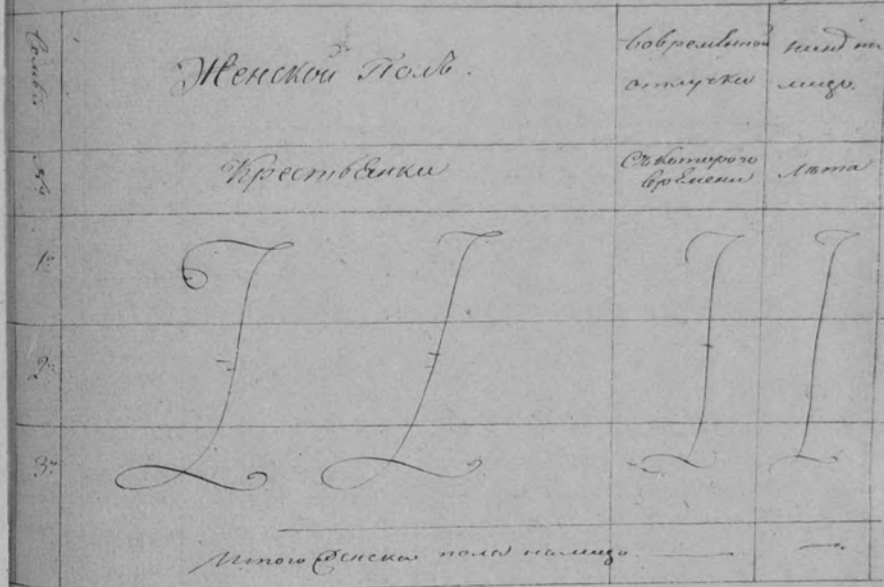 Семьи
№
Женской Полъ.
Во временной
отлучке
ныне на
лицо.
Крестьянки
Съ котораго
времени
лѣта
1й
2й
3й
Итого женска пола налицо